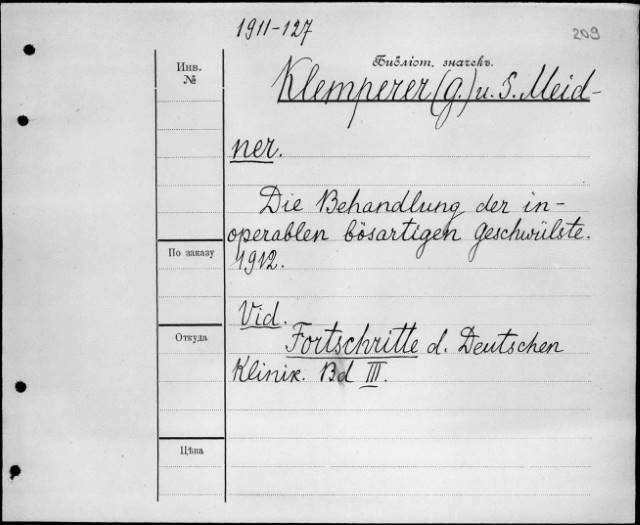 1911-127
209
Инв.
№
Библіот. значекъ.
Klemperer (G.) u. S. Meid-
ner.
Die Behandlung der in-
operablen bösartigen Geschwülste.
1912.
По заказу
Vid.
Откуда
Fortschritte d. Deutschen
Klinik. Bd III.
Цѣна